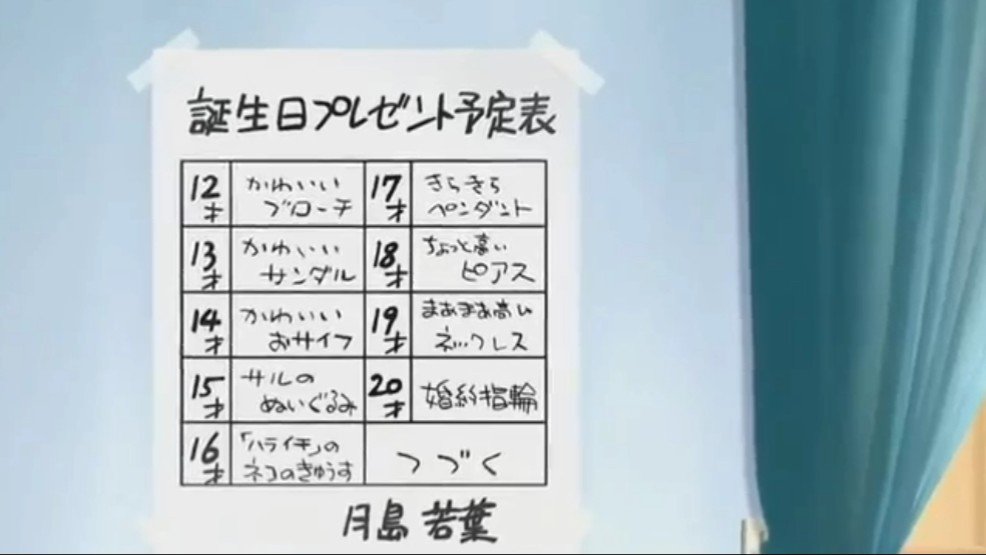 誕生日プレゼント予定表
12才
かわいい
ブローチ
13才
かわいい
サンダル
14才
かわいい
おサイフ
15才
サルの
ぬいぐるみ
16才
「ハライチ」の
ネコのきゅうす
17才
きらきら
ペンダント
18才
ちょっと高い
ピアス
19才
まあまあ高い
ネックレス
20才
婚約指輪
つづく
月島若葉